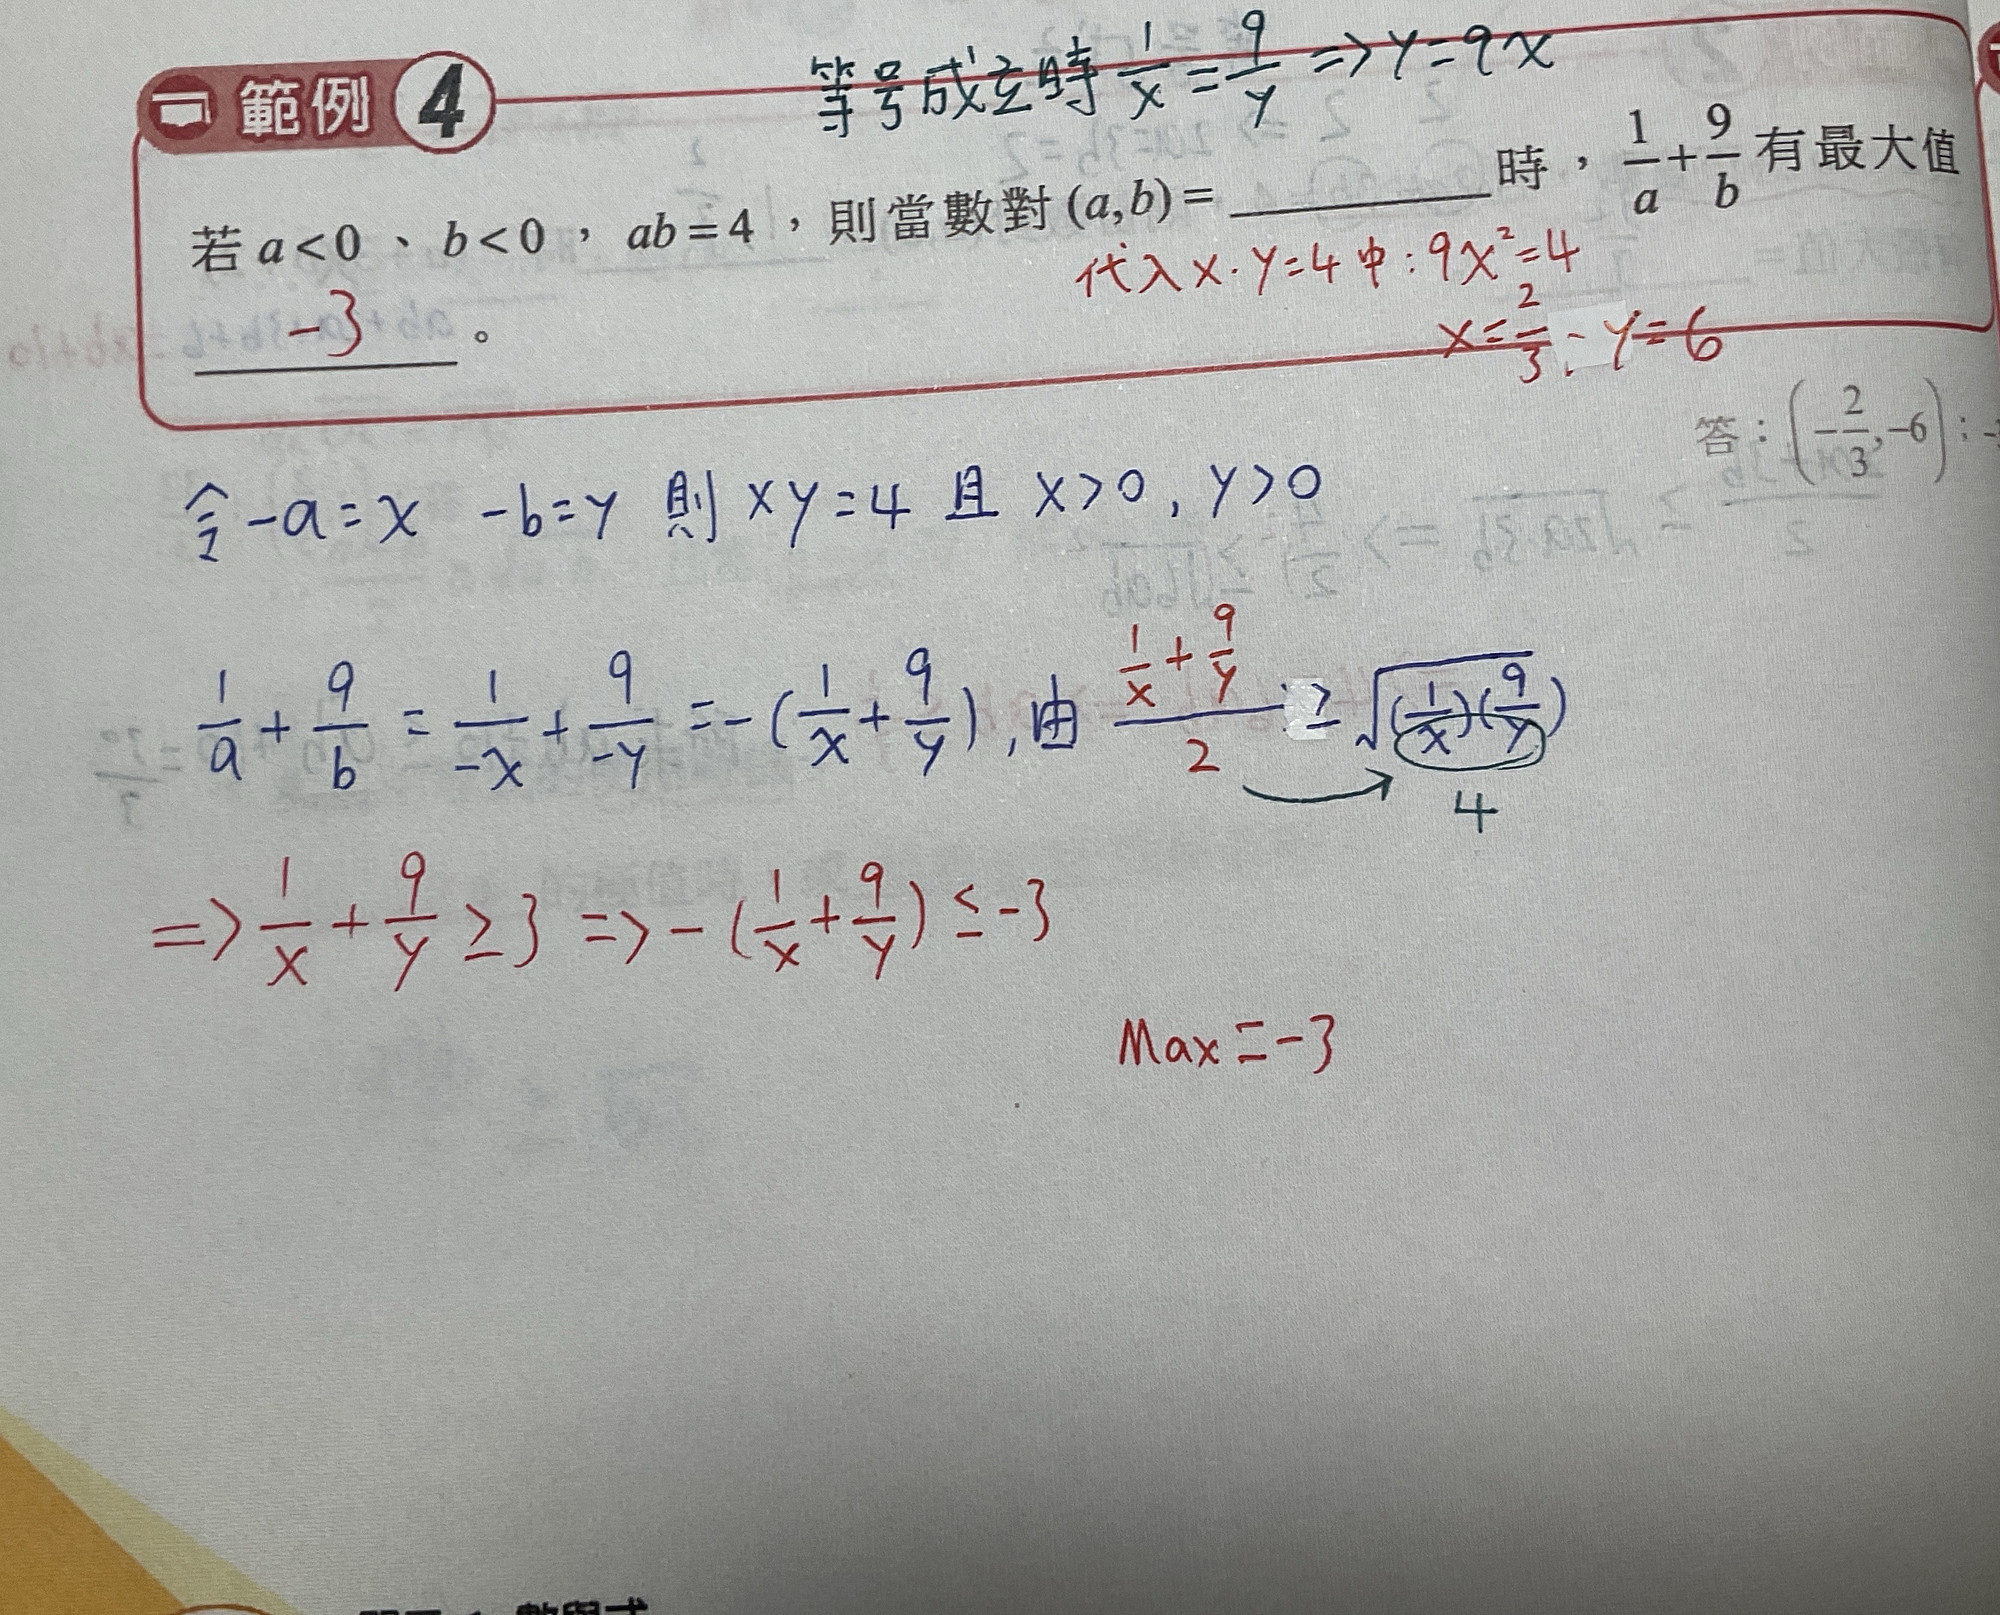 等号成立時 1/x = 9/y => y=9x
範例 4
若 a<0、b<0,ab=4,則當數對(a,b)=________時,1/a+9/b 有最大值
代入 x·y=4中:9x²=4
-3 。
x=2/3、y=6
答:(-2/3,-6);-
令 -a=x -b=y 則 xy=4 且 x>0, y>0
1/a + 9/b = 1/-x + 9/-y = -(1/x + 9/y), 由 (1/x + 9/y)/2 ≥ √(1/x)(9/y)
4
=> 1/x + 9/y ≥ 3 => -(1/x + 9/y) ≤ -3
Max = -3